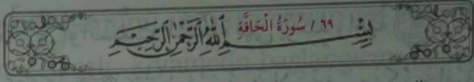 ٦٩ / سُورَةُ الْحَاقَّةِ
بِسْمِ اللَّهِ الرَّحْمَٰنِ الرَّحِيمِ